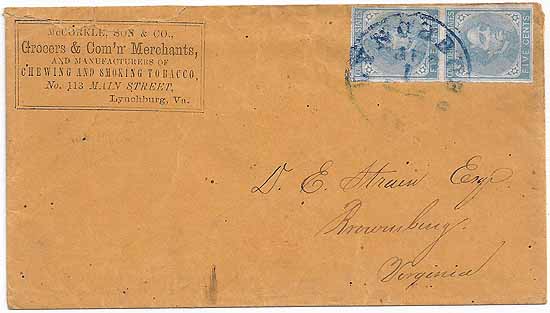 McCORKLE, SON & CO.,
Grocers & Com'n Merchants,
AND MANUFACTURERS OF
CHEWING AND SMOKING TOBACCO,
No. 113 MAIN STREET,
Lynchburg, Va.
FIVE CENTS
D. E. Strain Esq.
Brownsburg.
Virginia